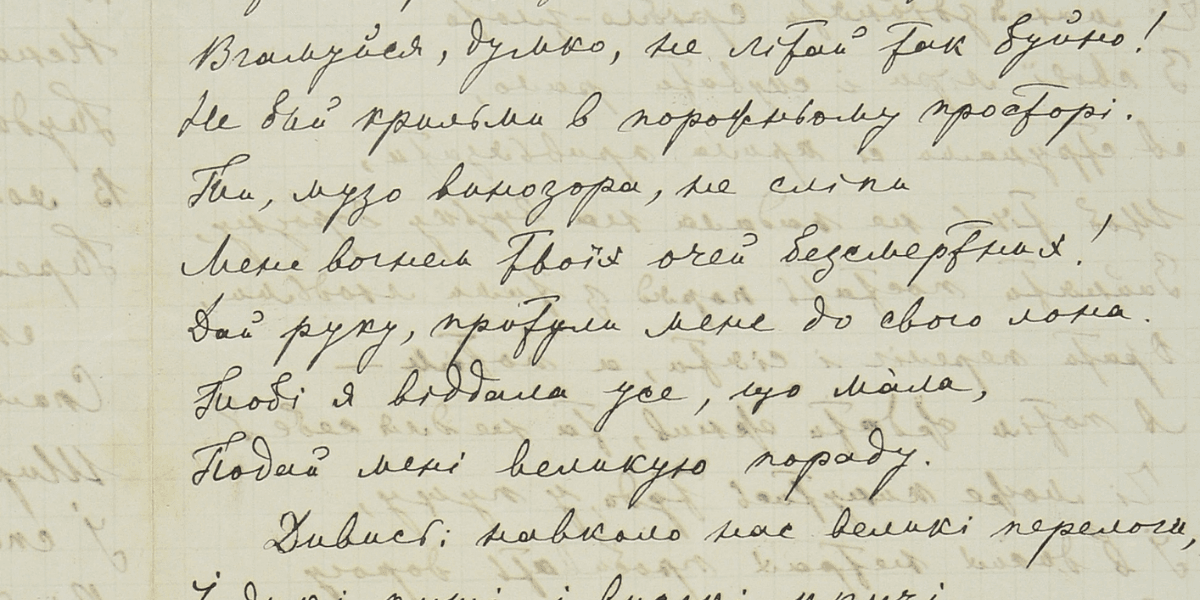 Вгамуйся, думко, не літай так буйно!
Не бий крильми в порожньому просторі.
Ти, музо винозора, не сліпи
Мене вогнем твоїх очей безсмертних!
Дай руку, притули мене до свого лона.
Тобі я віддала усе, що мàла,
Подай мені великую пораду.
Дивись: навколо нас великі перелоги,
І дикі пущі, і високі кручі